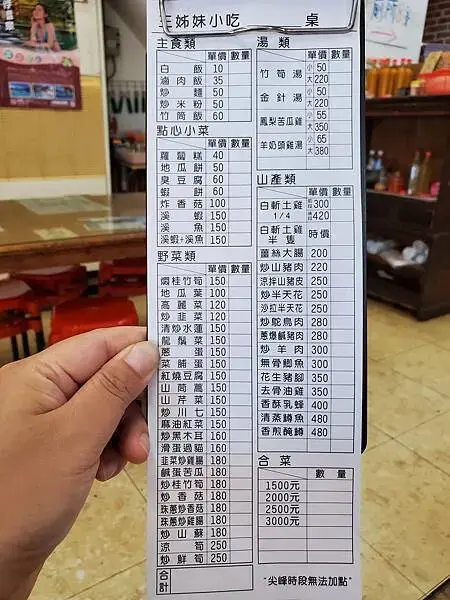 三姊妹小吃 桌
主食類 單價 數量
白飯 10
滷肉飯 35
炒麵 50
炒米粉 50
竹筒飯 60
點心小菜 單價 數量
蘿蔔糕 40
地瓜餅 50
臭豆腐 60
蝦餅 60
炸香菇 100
溪蝦 150
溪魚 150
溪蝦+溪魚 150
野菜類 單價 數量
焢桂竹筍 150
地瓜葉 100
高麗菜 120
炒韭菜 120
清炒水蓮 150
龍鬚菜 150
蔥蛋 150
菜脯蛋 150
紅燒豆腐 150
山茼蒿 150
山芹菜 150
炒川七 150
麻油紅菜 150
炒黑木耳 160
滑蛋過貓 160
韭菜炒雞腸 180
鹹蛋苦瓜 180
炒桂竹筍 180
炒香菇 180
珠蔥炒香菇 180
珠蔥炒雞腸 180
炒山蘇 180
涼筍 250
炒鮮筍 250
合計
湯類 單價 數量
竹筍湯 小50 大220
金針湯 小50 大220
鳳梨苦瓜雞 小55 大350
羊奶頭雞湯 小65 大380
山產類 單價 數量
白斬土雞 1/4 300 420
白斬土雞 半隻 時價
薑絲大腸 200
炒山豬肉 220
涼拌山豬皮 250
炒半天花 250
沙拉半天花 250
炒鴕鳥肉 280
蔥爆鹹豬肉 280
炒羊肉 300
無骨鯽魚 300
花生豬腳 350
去骨油雞 350
香酥乳蜂 400
清蒸鱒魚 480
香煎醃鱒 480
合菜 數量
1500元
2000元
2500元
3000元
"尖峰時段無法加點"